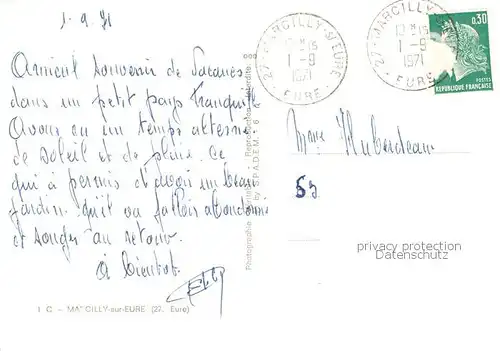 1.9.71
Amical souvenir de Vacances
dans un petit pays tranquille
Avons eu un temps alterné
de soleil et de pluie. Ce
qui a permis d'avoir un beau
jardin qu'il va falloir abandonner
et songer au retour.
à bientôt.
1 C. - MARCILLY-sur-EURE (27. Eure)
Reproduction interdite
by S.P.A.D.E.M. - 6
27-MARCILLY-S/EURE
12 H 15
1 - 9
1971
EURE
27-MARCILLY
12 H 15
1 - 9
1971
EURE
0,30
POSTES
REPUBLIQUE FRANÇAISE
Mme Huberdeau
privacy protection
Datenschutz